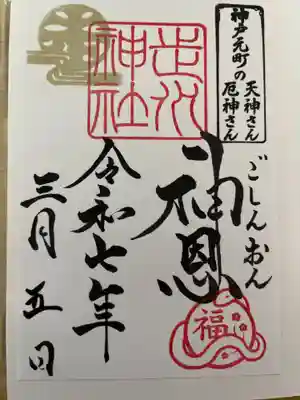 神戸元町の
天神さん
厄神さん
走水神社
ごしんおん
神恩
福
令和七年
三月五日